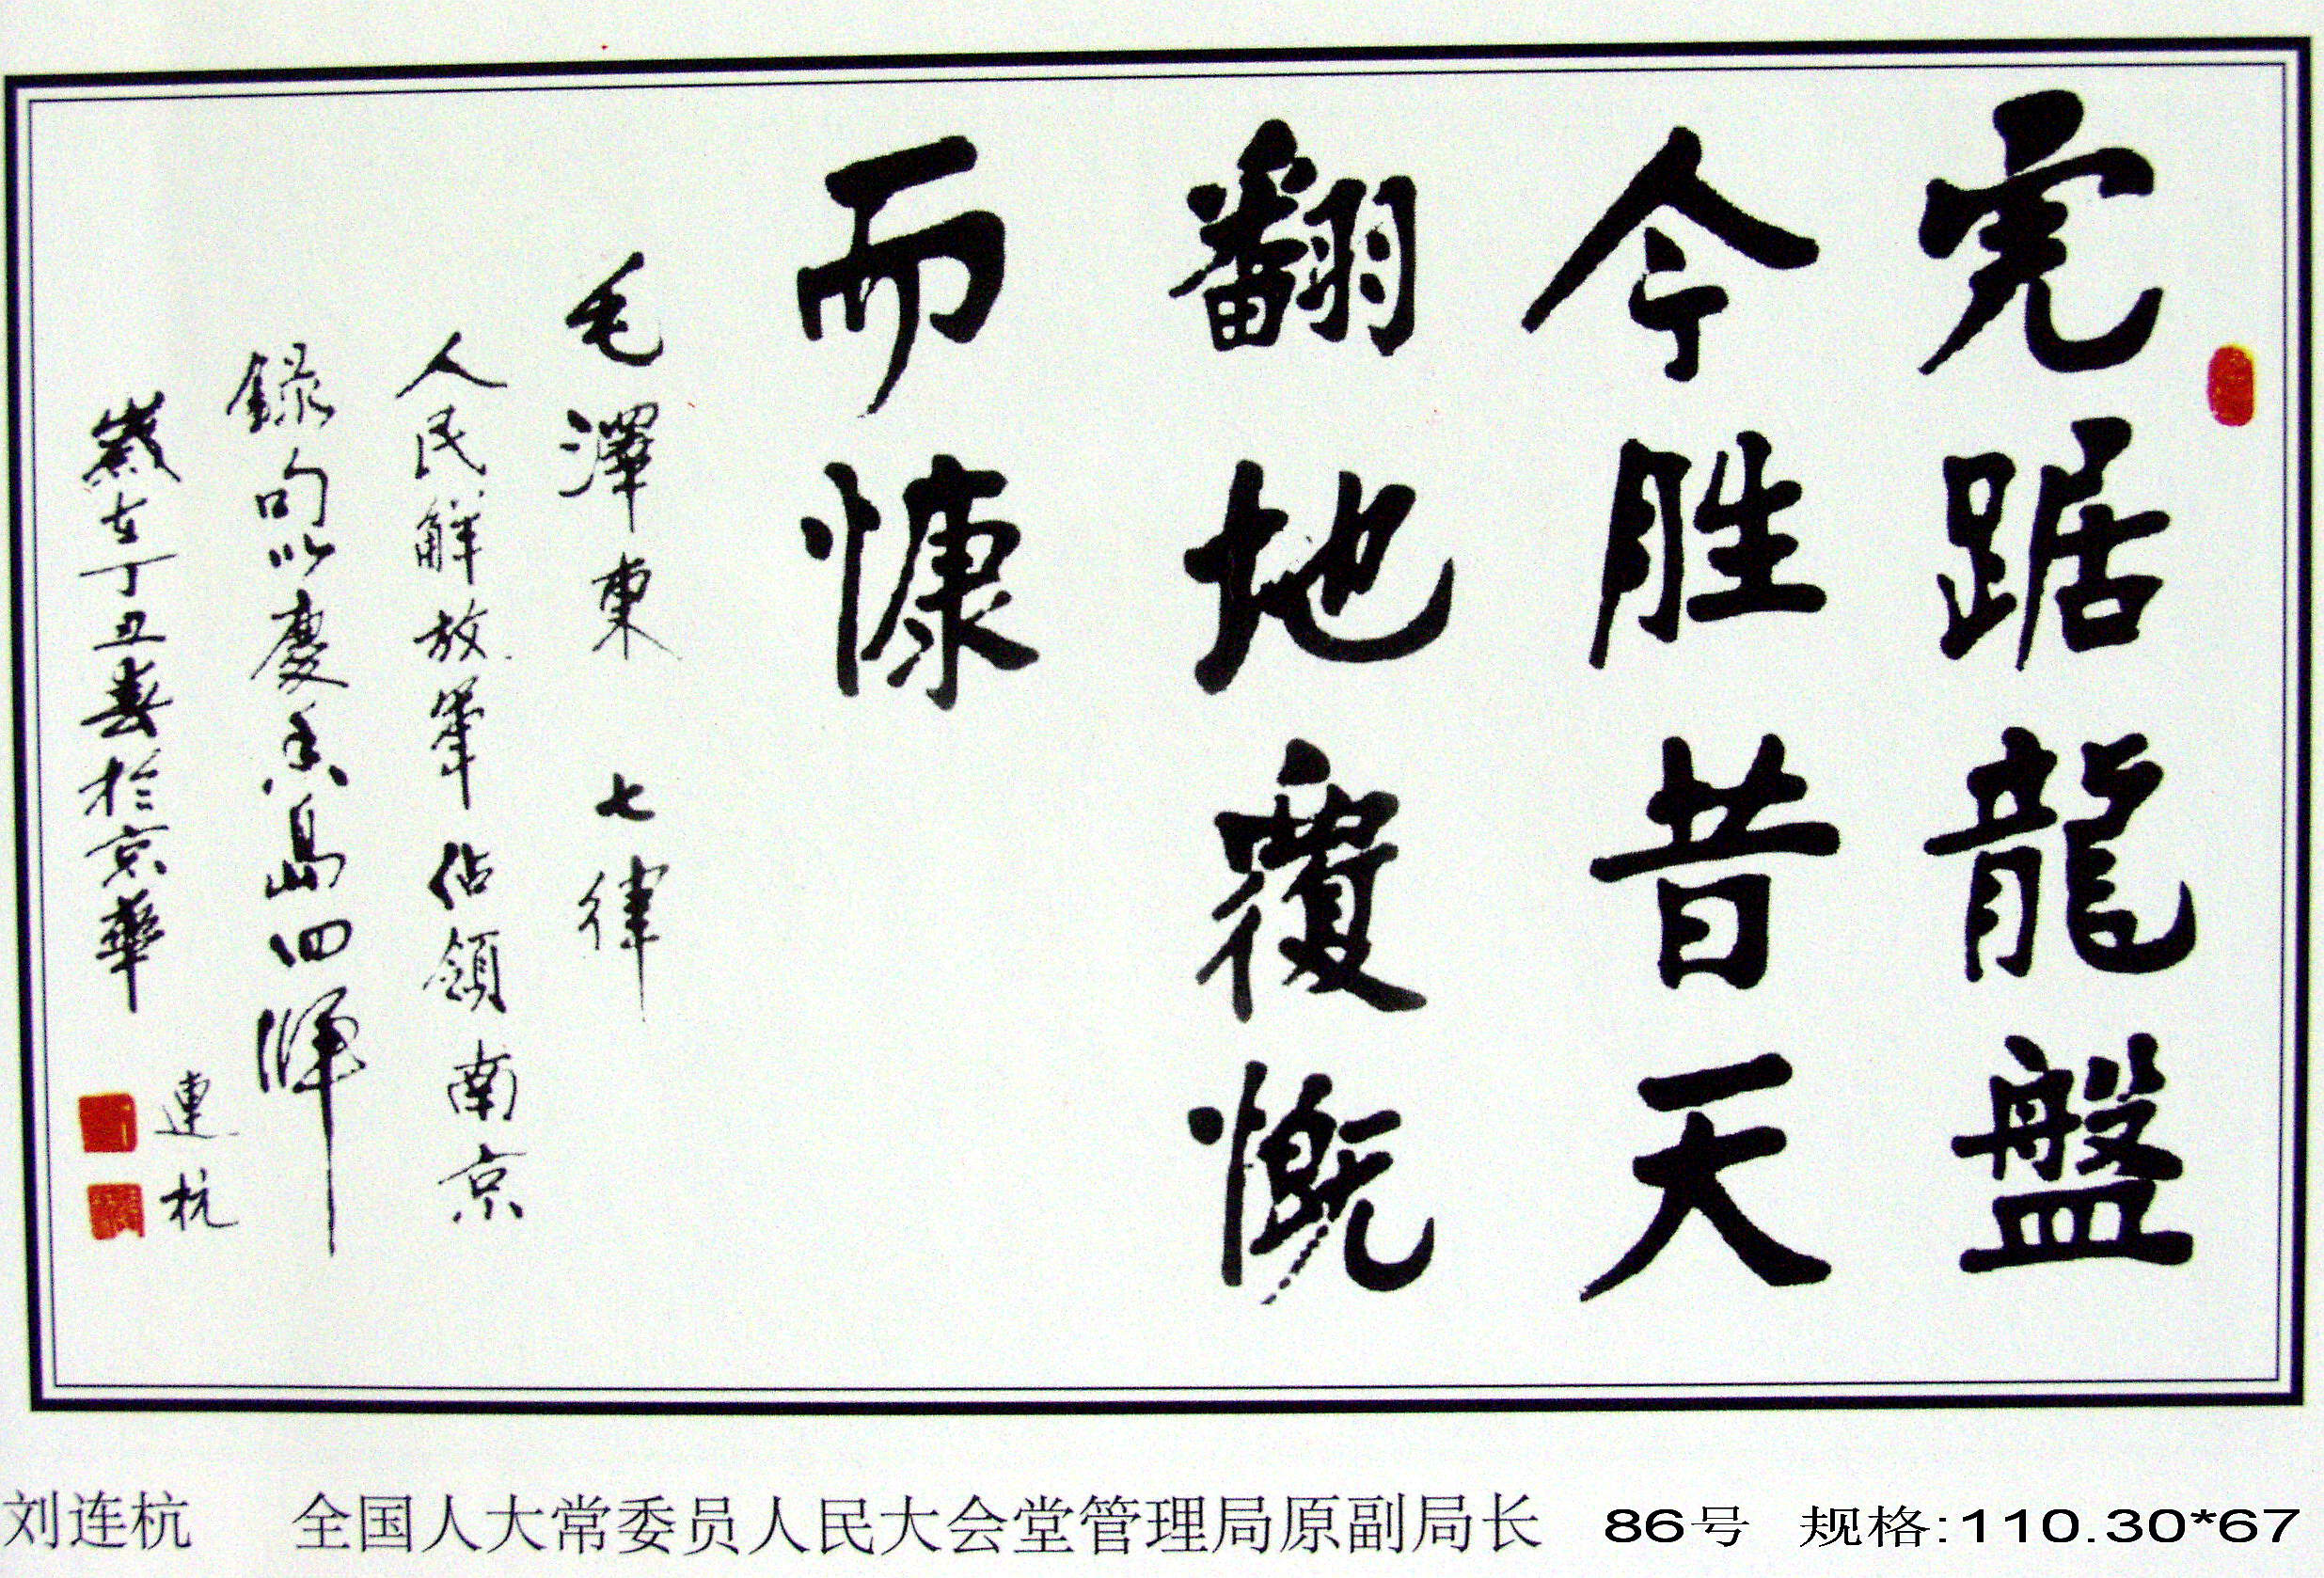 虎踞龍盤
今胜昔天
翻地覆慨
而慷
毛澤東 七律
人民解放軍佔領南京
錄句以慶香島回歸
歲在丁丑春於京華
連杭
刘连杭 全国人大常委员人民大会堂管理局原副局长 86号 规格:110.30*67